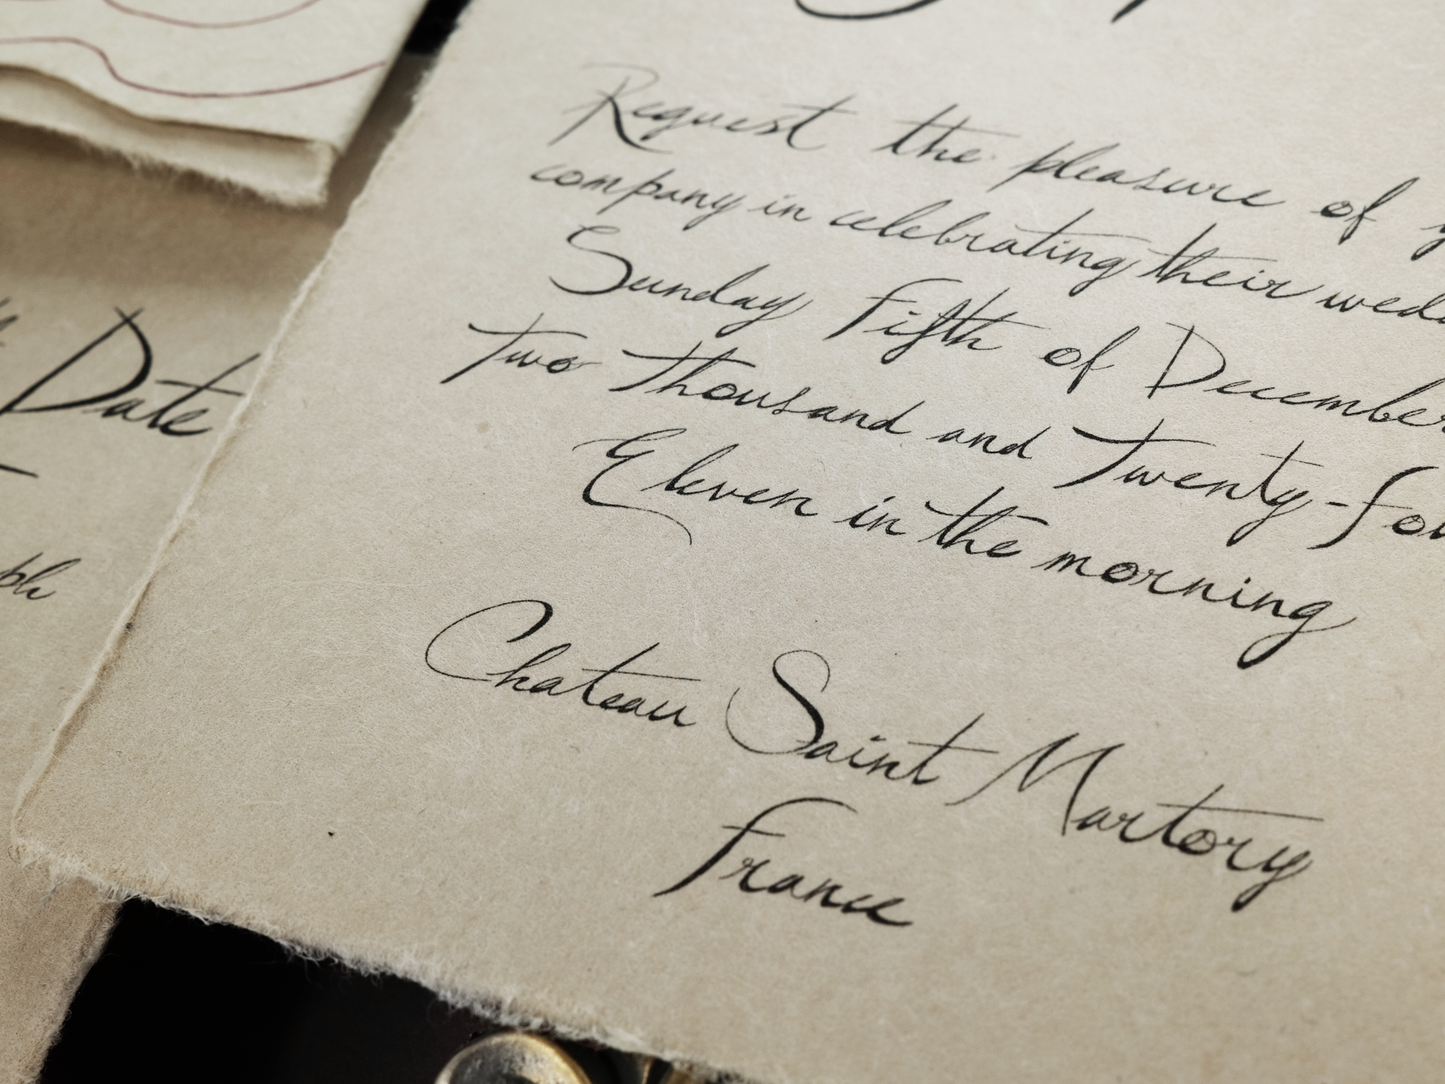 Request the pleasure of
company in celebrating their
Sunday Fifth of December
Two Thousand and Twenty-
Eleven in the morning
Chateau Saint Martory
France
Date